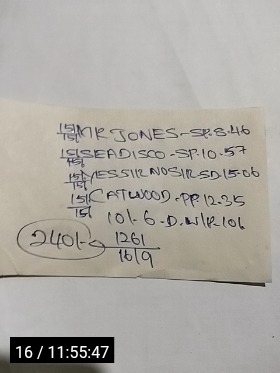 15/15/ MR JONES-SP.8.46
15/15/ SEADISCO-SP.10.57
15/15/ YESSIR NOSIR.SD.15.06
15/15/ CATWOOD-PP.12.35
10/-6-D.W/R106
2401- 1261
1619
16 / 11:55:47